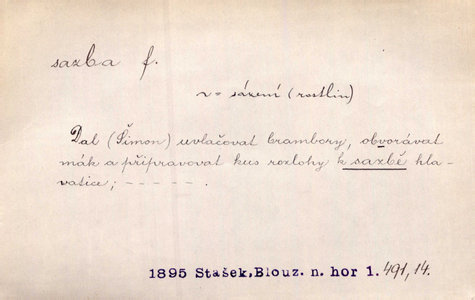 sazba f.
v = sázení (rostlin)
Dal (Šimon) uvláčovat brambory, obvorávat
mák a připravovat kus rozlohy k sazbě hla-
vatice; - - - - - .
1895 Stašek, Blouz. n. hor 1. 491, 14.